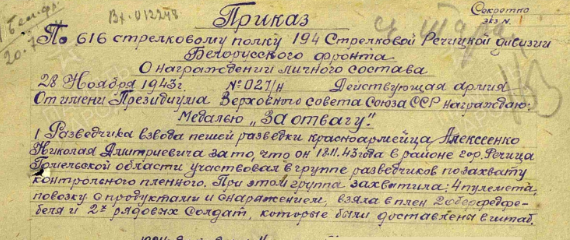 Приказ
Секретно
экз N.
Вх. 012248
По 616 стрелковому полку 194 Стрелковой Речицкой дивизии
Белорусского фронта
О награждении личного состава
28 Ноября 1943г. №027/н Действующая армия
От имени Президиума Верховного совета Союза ССР награждаю:
Медалью "За отвагу"
1 Разведчика взвода пешей разведки красноармейца Алексеенко
Николая Дмитриевича за то, что он 17.11.43 года в районе гор. Речица
Гомельской области участвовал в группе разведчиков по захвату
контрольного пленного. При этом группа захватила: 4 пулемета,
повозку с продуктами и снаряжением, взяла в плен 2 оберфедфе-
беля и 2х рядовых солдат, которые были доставлена в штаб.